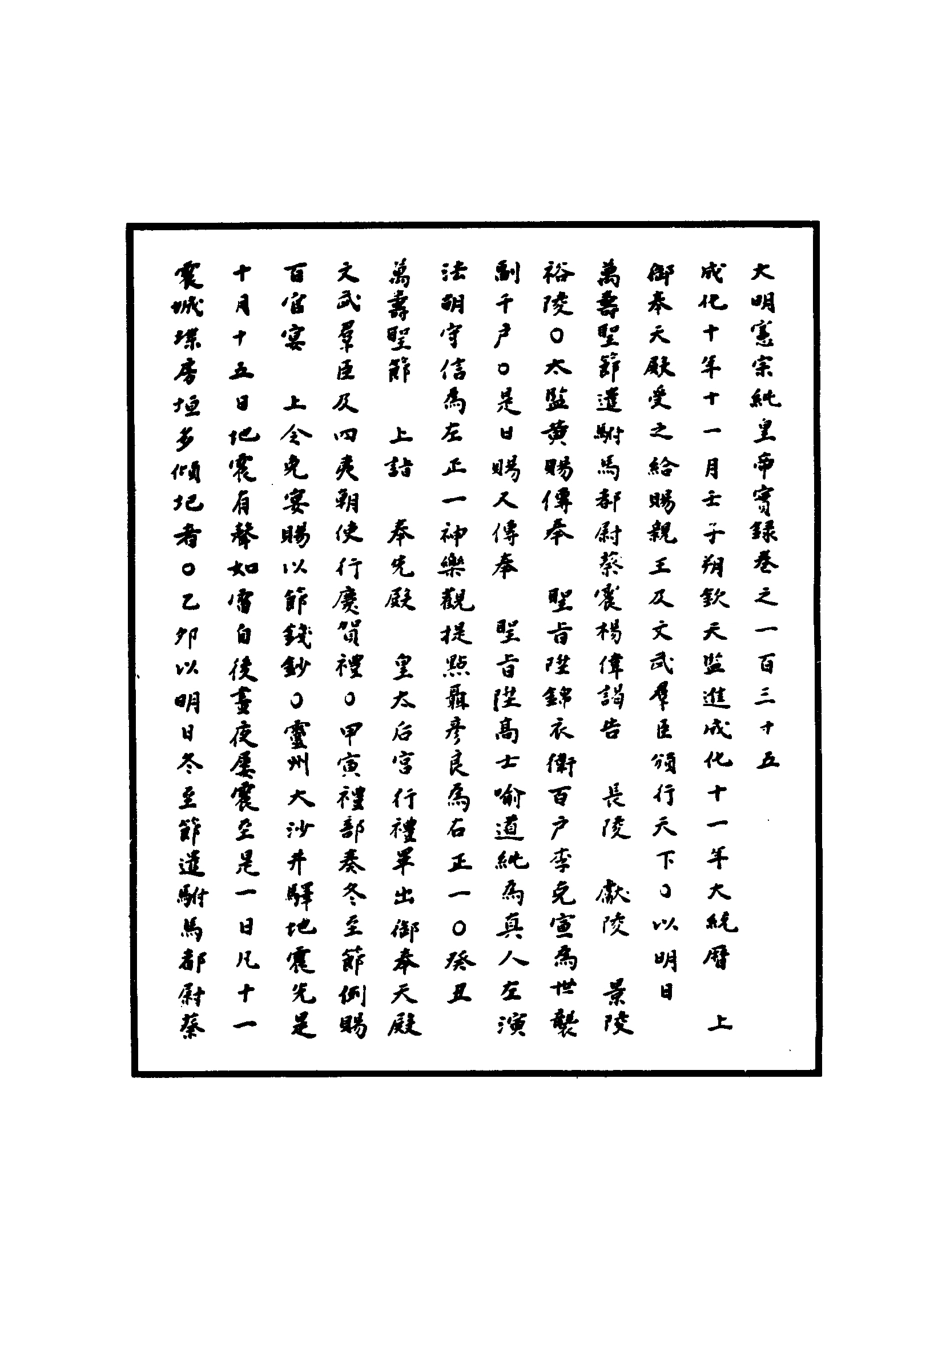 大明憲宗純皇帝實錄卷之一百三十五
成化十年十一月壬子朔欽天監進成化十一年大統曆　上
御奉天殿受之給賜親王及文武羣臣頒行天下○以明日
萬壽聖節遣駙馬都尉蔡震楊偉謁告　長陵　獻陵　景陵
裕陵○太監黃賜傳奉　聖旨陞錦衣衛百戶李克宣為世襲
副千戶○是日賜又傳奉　聖旨陞高士喻道純為真人左演
法胡守信為左正一神樂觀提點聶彥良為右正一○癸丑
萬壽聖節　上詣　奉先殿　皇太后宮行禮畢出御奉天殿
文武羣臣及四夷朝使行慶賀禮○甲寅禮部奏冬至節例賜
百官宴　上令免宴賜以節錢鈔○靈州大沙井驛地震先是
十月十五日地震有聲如雷自後晝夜屢震至是一日凡十一
震城堞房垣多傾圮者○乙卯以明日冬至節遣駙馬都尉蔡